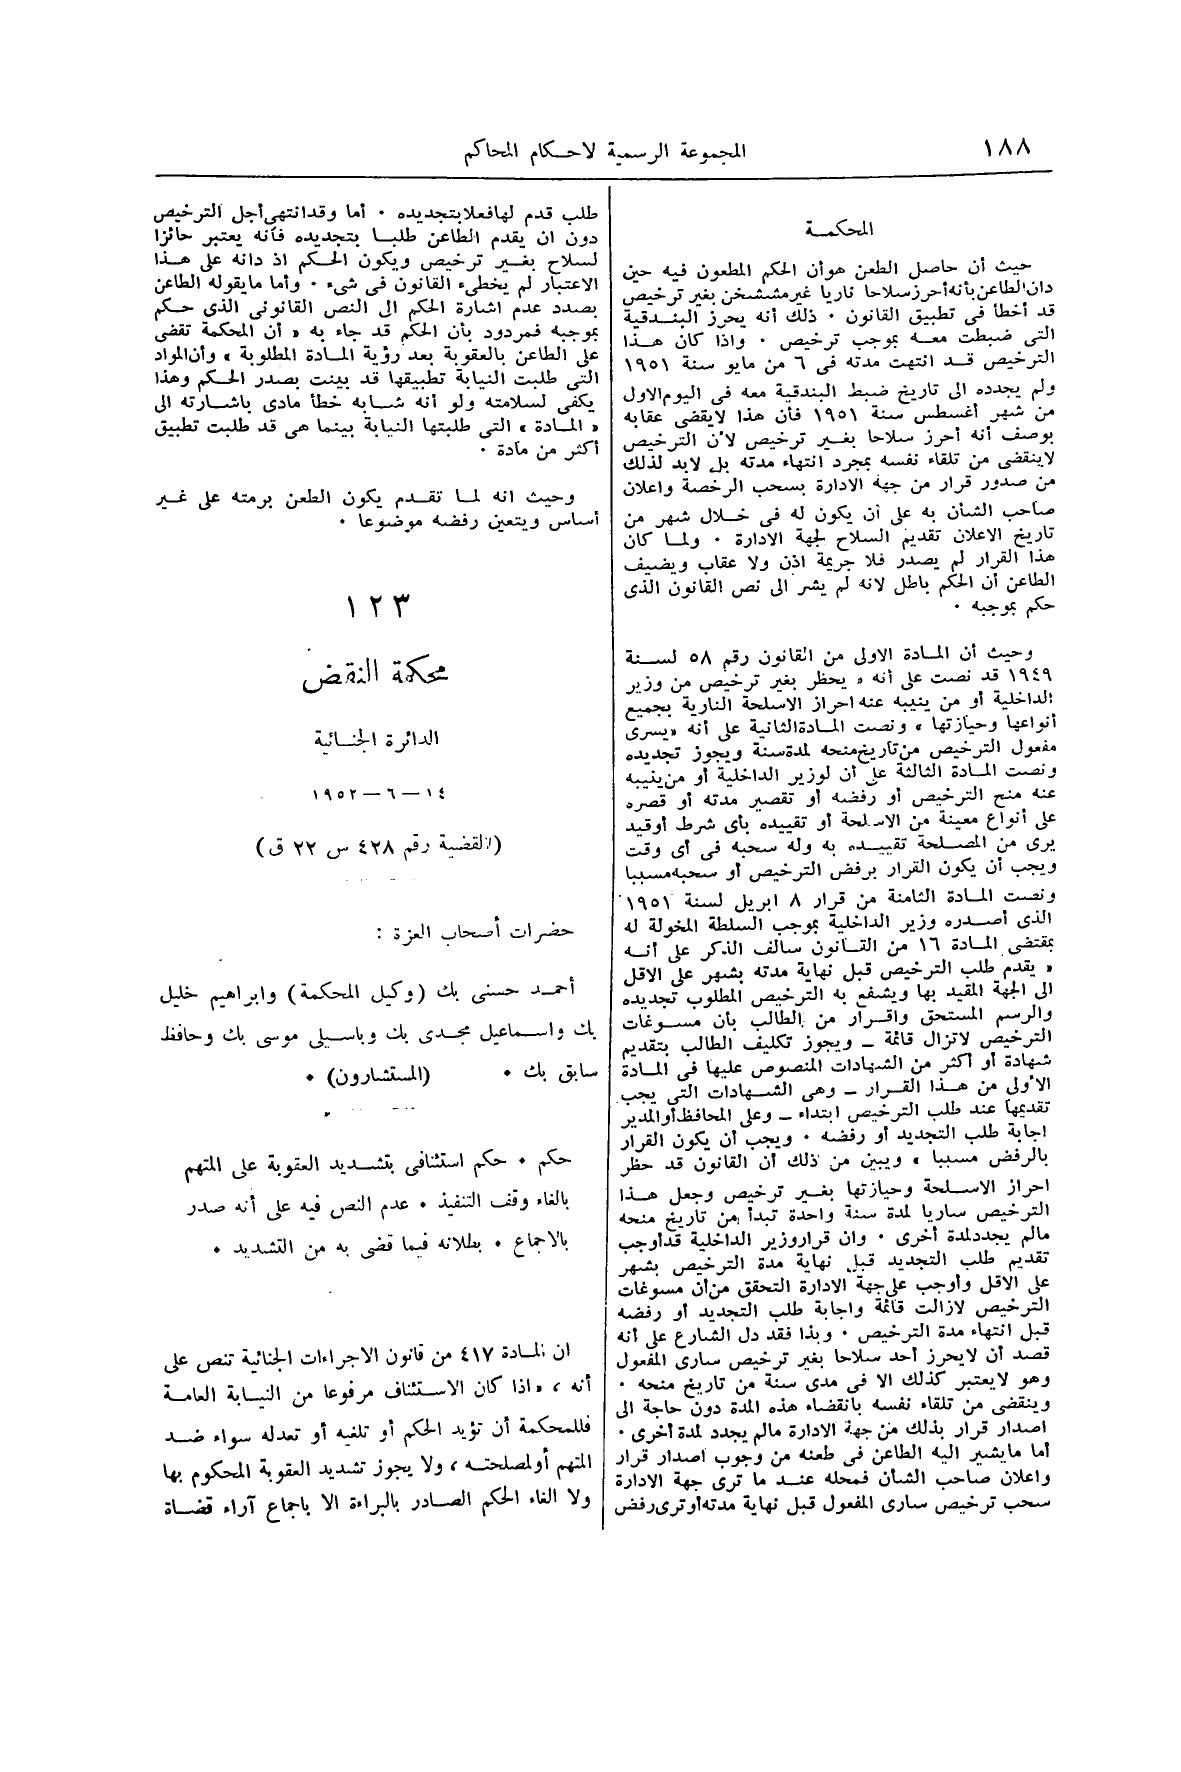 ١٨٨
المجموعة الرسمية لاحكام المحاكم
المحكمة
حيث أن حاصل الطعن هوأن الحكم المطعون فيه حين
دان الطاعن بأنه أحرز سلاحا ناريا غير مششخن بغير ترخيص
قد أخطأ فى تطبيق القانون ٠ ذلك أنه يحرز البندقية
التى ضبطت معه بموجب ترخيص ٠ واذا كان هذا
الترخيص قد انتهت مدته فى ٦ من مايو سنة ١٩٥١
ولم يجدده الى تاريخ ضبط البندقية معه فى اليوم الاول
من شهر أغسطس سنة ١٩٥١ فأن هذا لايقضى عقابه
بوصف أنه أحرز سلاحا بغير ترخيص لأن الترخيص
لاينقضى من تلقاء نفسه بمجرد انتهاء مدته بل لابد لذلك
من صدور قرار من جهة الادارة بسحب الرخصة واعلان
صاحب الشأن به على أن يكون له فى خلال شهر من
تاريخ الاعلان تقديم السلاح لجهة الادارة ٠ ولما كان
هذا القرار لم يصدر فلا جريمة اذن ولا عقاب ويضيف
الطاعن أن الحكم باطل لانه لم يشر الى نص القانون الذى
حكم بموجبه ٠
وحيث أن المادة الاولى من القانون رقم ٥٨ لسنة
١٩٤٩ قد نصت على أنه « يحظر بغير ترخيص من وزير
الداخلية أو من ينيبه عنه احراز الاسلحة النارية بجميع
أنواعها وحيازتها » ونصت المادة الثانية على أنه «يسرى
مفعول الترخيص من تاريخ منحه لمدة سنة ويجوز تجديده
ونصت المادة الثالثة على أن لوزير الداخلية أو من ينيبه
عنه منح الترخيص أو رفضه أو تقصير مدته أو قصره
على أنواع معينة من الاسلحة أو تقييده بأى شرط أوقيد
يرى من المصلحة تقييده به وله سحبه فى أى وقت
ويجب أن يكون القرار برفض الترخيص أو سحبه مسببا
ونصت المادة الثامنة من قرار ٨ ابريل لسنة ١٩٥١
الذى أصدره وزير الداخلية بموجب السلطة المخولة له
بمقتضى المادة ١٦ من القانون سالف الذكر على أنه
« يقدم طلب الترخيص قبل نهاية مدته بشهر على الاقل
الى الجهة المقيد بها ويشفع به الترخيص المطلوب تجديده
والرسم المستحق واقرار من الطالب بأن مسوغات
الترخيص لاتزال قائمة ــ ويجوز تكليف الطالب بتقديم
شهادة أو أكثر من الشهادات المنصوص عليها فى المادة
الأولى من هذا القرار ــ وهى الشهادات التى يجب
تقديمها عند طلب الترخيص ابتداء ــ وعلى المحافظ أوالمدير
اجابة طلب التجديد أو رفضه ٠ ويجب أن يكون القرار
بالرفض مسببا » ويبين من ذلك أن القانون قد حظر
احراز الاسلحة وحيازتها بغير ترخيص وجعل هذا
الترخيص ساريا لمدة سنة واحدة تبدأ من تاريخ منحه
مالم يجدد لمدة أخرى ٠ وان قرار وزير الداخلية قد أوجب
تقديم طلب التجديد قبل نهاية مدة الترخيص بشهر
على الاقل وأوجب على جهة الادارة التحقق من أن مسوغات
الترخيص لازالت قائمة واجابة طلب التجديد أو رفضه
قبل انتهاء مدة الترخيص ٠ وبذا فقد دل الشارع على أنه
قصد أن لايحرز أحد سلاحا بغير ترخيص سارى المفعول
وهو لايعتبر كذلك الا فى مدى سنة من تاريخ منحه ٠
وينقضى من تلقاء نفسه بانقضاء هذه المدة دون حاجة الى
اصدار قرار بذلك من جهة الادارة مالم يجدد لمدة أخرى ٠
أما مايشير اليه الطاعن فى طعنه من وجوب اصدار قرار
واعلان صاحب الشأن فمحله عند ما ترى جهة الادارة
سحب ترخيص سارى المفعول قبل نهاية مدته أو ترى رفض
طلب قدم لها فعلا بتجديده ٠ أما وقد انتهى أجل الترخيص
دون ان يقدم الطاعن طلبا بتجديده فأنه يعتبر حائزا
لسلاح بغير ترخيص ويكون الحكم اذ دانه على هذا
الاعتبار لم يخطىء القانون فى شىء ٠ وأما مايقوله الطاعن
بصدد عدم اشارة الحكم الى النص القانونى الذى حكم
بموجبه فمردود بأن الحكم قد جاء به « أن المحكمة تقضى
على الطاعن بالعقوبة بعد رؤية المادة المطلوبة » وأن المواد
التى طلبت النيابة تطبيقها قد بينت بصدر الحكم وهذا
يكفى لسلامته ولو أنه شابه خطأ مادى باشارته الى
« المادة » التى طلبتها النيابة بينما هى قد طلبت تطبيق
أكثر من مادة ٠
وحيث انه لما تقدم يكون الطعن برمته على غير
أساس ويتعين رفضه موضوعا ٠
١٢٣
محكمة النقض
الدائرة الجنائية
١٤ ــ ٦ ــ ١٩٥٢
(القضية رقم ٤٢٨ س ٢٢ ق)
حضرات أصحاب العزة :
أحمد حسنى بك (وكيل المحكمة) وابراهيم خليل
بك واسماعيل مجدى بك وباسيلى موسى بك وحافظ
سابق بك ٠ (المستشارون) ٠
حكم ٠ حكم استئنافى بتشديد العقوبة على المتهم
بالغاء وقف التنفيذ ٠ عدم النص فيه على أنه صدر
بالاجماع ٠ بطلانه فيما قضى به من التشديد ٠
ان المادة ٤١٧ من قانون الاجراءات الجنائية تنص على
أنه ، «اذا كان الاستئناف مرفوعا من النيابة العامة
فللمحكمة أن تؤيد الحكم أو تلغيه أو تعدله سواء ضد
المتهم أولمصلحته ، ولا يجوز تشديد العقوبة المحكوم بها
ولا الغاء الحكم الصادر بالبراءة الا باجماع آراء قضاة